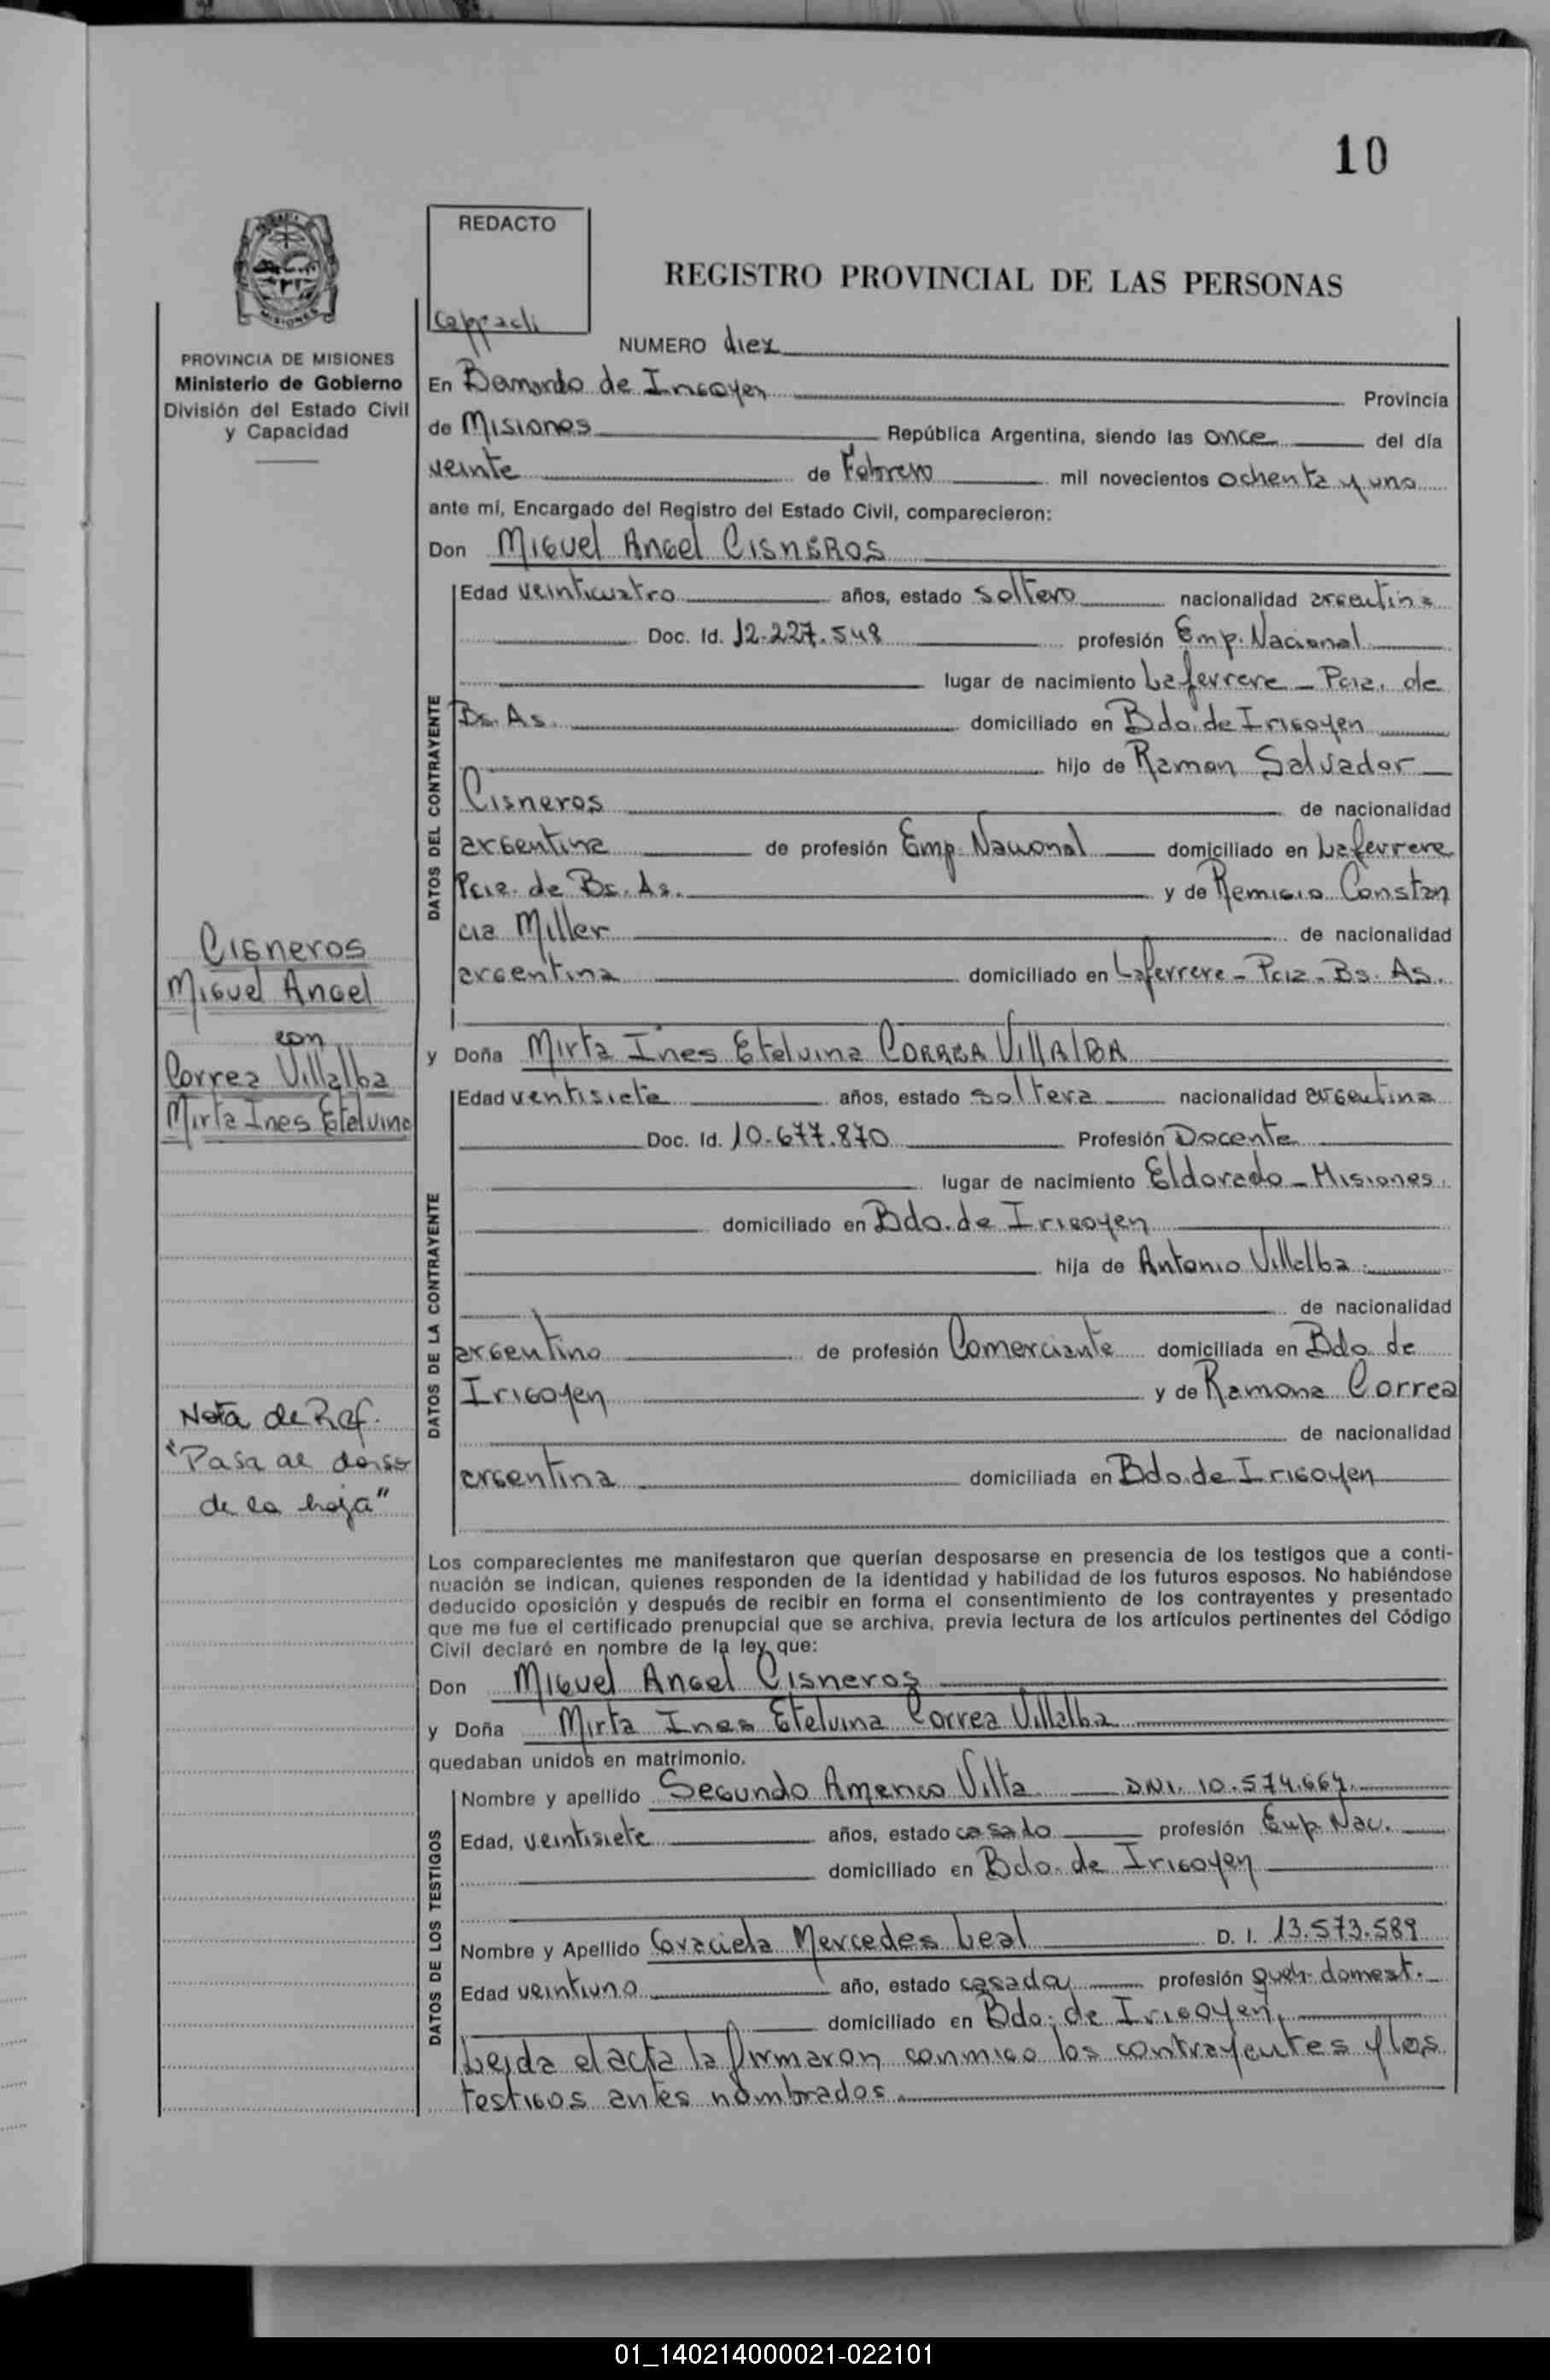 10
REDACTO
REGISTRO PROVINCIAL DE LAS PERSONAS
PROVINCIA DE MISIONES
Ministerio de Gobierno
División del Estado Civil
y Capacidad
NUMERO diez
En Bernardo de Irigoyen Provincia
de Misiones República Argentina, siendo las once del día
veinte de Febrero mil novecientos ochenta y uno
ante mí, Encargado del Registro del Estado Civil, comparecieron:
Don Miguel Angel CISNEROS
DATOS DEL CONTRAYENTE
Edad veinticuatro años, estado soltero nacionalidad argentina
Doc. Id. 12.227.548 profesión Emp. Nacional
lugar de nacimiento Laferrere - Pcia. de
Bs. As. domiciliado en Bdo. de Irigoyen
hijo de Ramon Salvador
Cisneros de nacionalidad
argentina de profesión Emp. Nacional domiciliado en Laferrere
Pcia. de Bs. As. y de Remigia Constan
cia Miller de nacionalidad
argentina domiciliado en Laferrere - Pcia. Bs. As.
Cisneros
Miguel Angel
con
Correa Villalba
Mirta Ines Etelvina
y Doña Mirta Ines Etelvina CORREA VIllAlBA
DATOS DE LA CONTRAYENTE
Edad ventisiete años, estado soltera nacionalidad argentina
Doc. Id. 10.677.870 Profesión Docente
lugar de nacimiento Eldorado - Misiones.
domiciliado en Bdo. de Irigoyen
hija de Antonio Villalba
de nacionalidad
argentino de profesión Comerciante domiciliada en Bdo. de
Irigoyen y de Ramona Correa
de nacionalidad
argentina domiciliada en Bdo. de Irigoyen
Nota de Ref.
"Pasa al dorso
de la hoja"
Los comparecientes me manifestaron que querían desposarse en presencia de los testigos que a conti-
nuación se indican, quienes responden de la identidad y habilidad de los futuros esposos. No habiéndose
deducido oposición y después de recibir en forma el consentimiento de los contrayentes y presentado
que me fue el certificado prenupcial que se archiva, previa lectura de los artículos pertinentes del Código
Civil declaré en nombre de la ley que:
Don Miguel Angel Cisneros
y Doña Mirta Ines Etelvina Correa Villalba
quedaban unidos en matrimonio.
DATOS DE LOS TESTIGOS
Nombre y apellido Segundo Americo Villa DNI. 10.574.664
Edad, veintisiete años, estado casado profesión Emp. Nac.
domiciliado en Bdo. de Irigoyen
Nombre y Apellido Graciela Mercedes Leal D. I. 13.573.589
Edad veintiuno año, estado casada profesión queh. domest.
domiciliado en Bdo. de Irigoyen.
Leida el acta la firmaron conmigo los contrayentes y los
testigos antes nombrados.
01_140214000021-022101